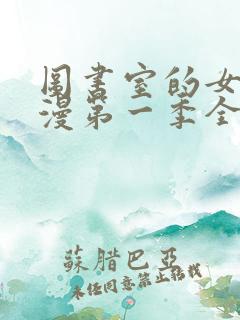 圖書室的女
漫第一季全
蘇腊巴亞
未经同意禁止转载